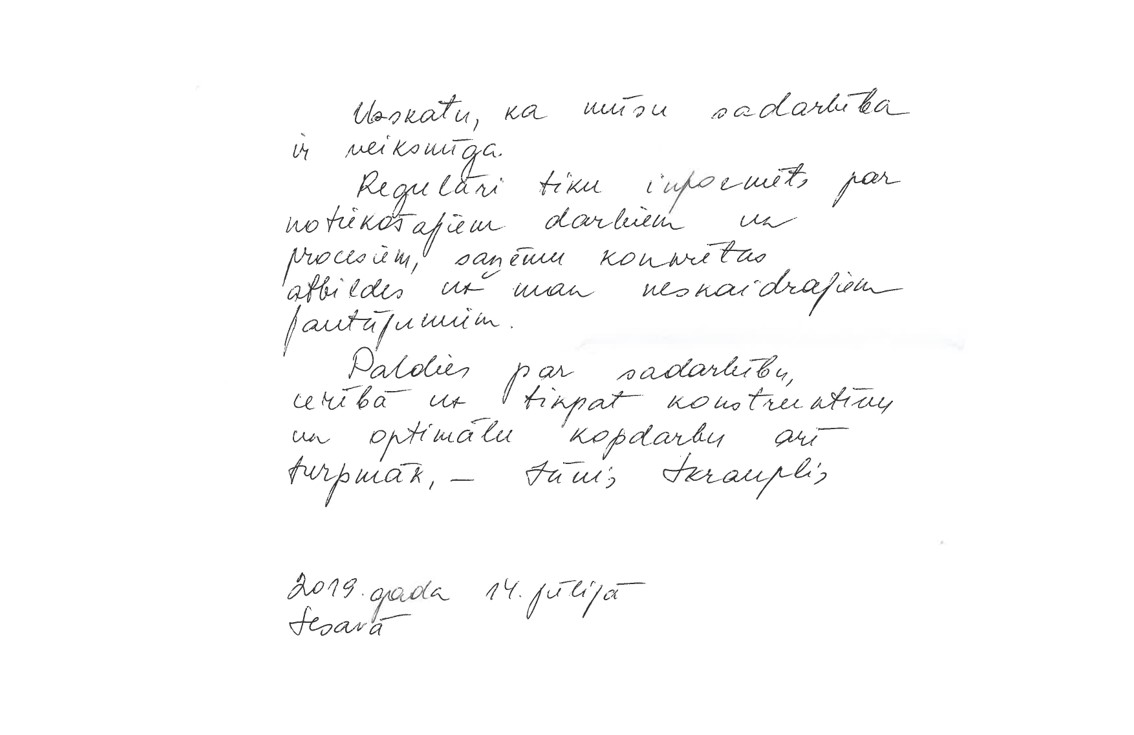 Uzskatu, ka mūsu sadarbība
ir veiksmīga.
Regulāri tiku informēts par
notiekošajiem darbiem un
procesiem, saņēmu konkrētas
atbildes uz man neskaidrajiem
jautājumiem.
Paldies par sadarbību,
cerībā uz tikpat konstruktīvu
un optimālu kopdarbu arī
turpmāk, – Jānis Skrauplis
2019. gada 14. jūlijā
Iecavā